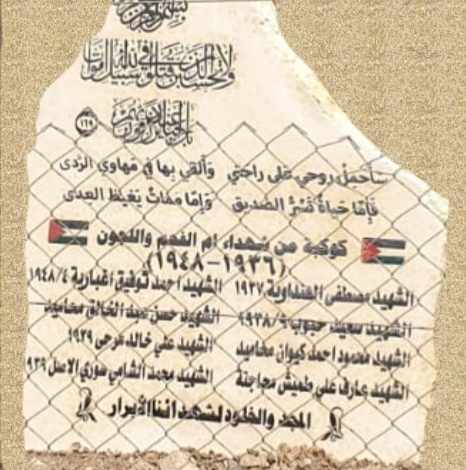 ولا تحسبن الذين قتلوا في سبيل الله أمواتا
بل أحياء عند ربهم يرزقون ١٦٩
سأحمل روحي على راحتي وألقي بها في مهاوي الردى
فإما حياة تسر الصديق وإما ممات يغيظ العدى
كوكبة من شهداء أم الفحم واللجون
(١٩٣٦-١٩٤٨)
الشهيد مصطفى الهنداوية ١٩٣٧ الشهيد احمد توفيق اغبارية ١٩٤٨/٤
الشهيد سعيد حبوب ١٩٣٨/٩ الشهيد حسن عبد الخالق محاميد
الشهيد محمود احمد كيوان محاميد الشهيد علي خالد مرعي ١٩٣٩
الشهيد عارف علي طميش محاجنة الشهيد محمد الشامي سوري الاصل ١٩٣٩
المجد والخلود لشهدائنا الأبرار